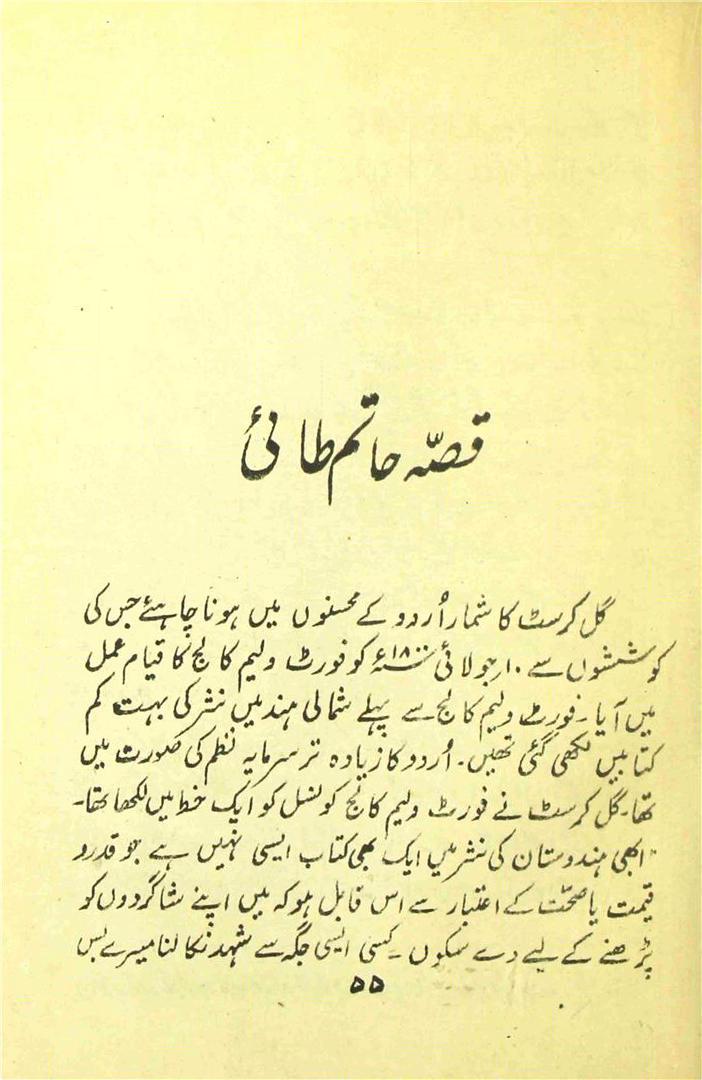 قصّہ حاتم طائی
گل کرسٹ کا شمار اُردو کے محسنوں میں ہونا چاہئے جس کی
کوششوں سے ۱۰؍جولائی ۱۸۰۰ء کو فورٹ ولیم کالج کا قیام عمل
میں آیا۔ فورٹ ولیم کالج سے پہلے شمالی ہند میں نثر کی بہت کم
کتابیں لکھی گئی تھیں۔ اُردو کا زیادہ تر سرمایہ نظم کی صورت میں
تھا۔ گل کرسٹ نے فورٹ ولیم کالج کونسل کو ایک خط میں لکھا تھا۔
"ابھی ہندوستان کی نثر میں ایک بھی کتاب ایسی نہیں ہے جو قدر و
قیمت یا صحّت کے اعتبار سے اس قابل ہو کہ میں اپنے شاگردوں کو
پڑھنے کے لیے دے سکوں۔ کسی ایسی جگہ سے شہد نکالنا میرے بس
۵۵